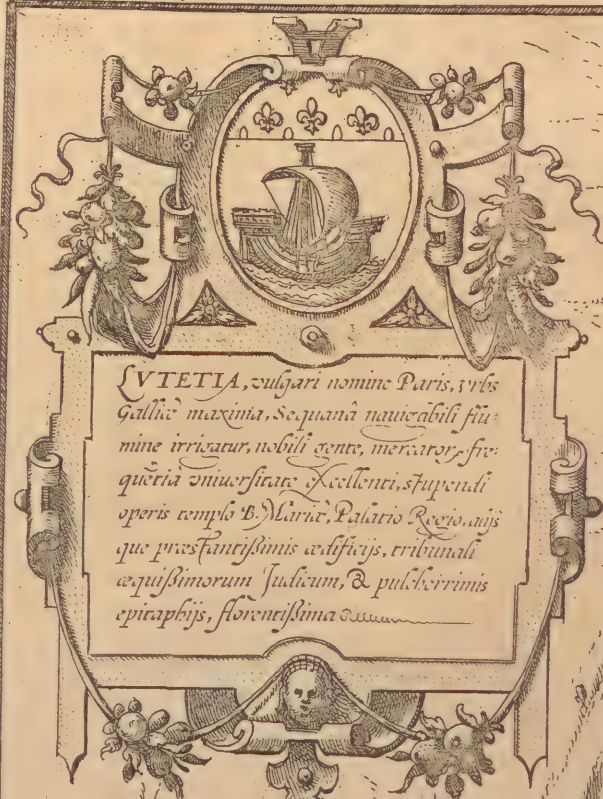 LVTETIA, vulgari nomine Paris, vrbs
Galliæ maxima, Sequanâ nauigabili flu:
mine irrigatur, nobili gente, mercator, fre:
quẽtia vniuersitate excellenti, stupendi
operis templo B. Mariæ, Palatio Regio, aijs
que præstantißimis ædificijs, tribunali
æquißimorum Iudicum, & pulcherrimis
epitaphijs, florentißima